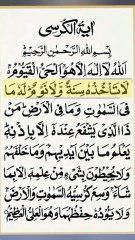 اية الكرسى
بسم الله الرحمن الرحيم
الله لا اله الا هو الحي القيوم
لا تأخذه سنة ولا نوم له ما
في السموت وما في الارض من
ذا الذي يشفع عنده الا باذنه
يعلم ما بين ايديهم وما خلفهم
ولا يحيطون بشيء من علمه الا بما
شاء وسع كرسيه السموت والارض
ولا يؤده حفظهما وهو العلي العظيم